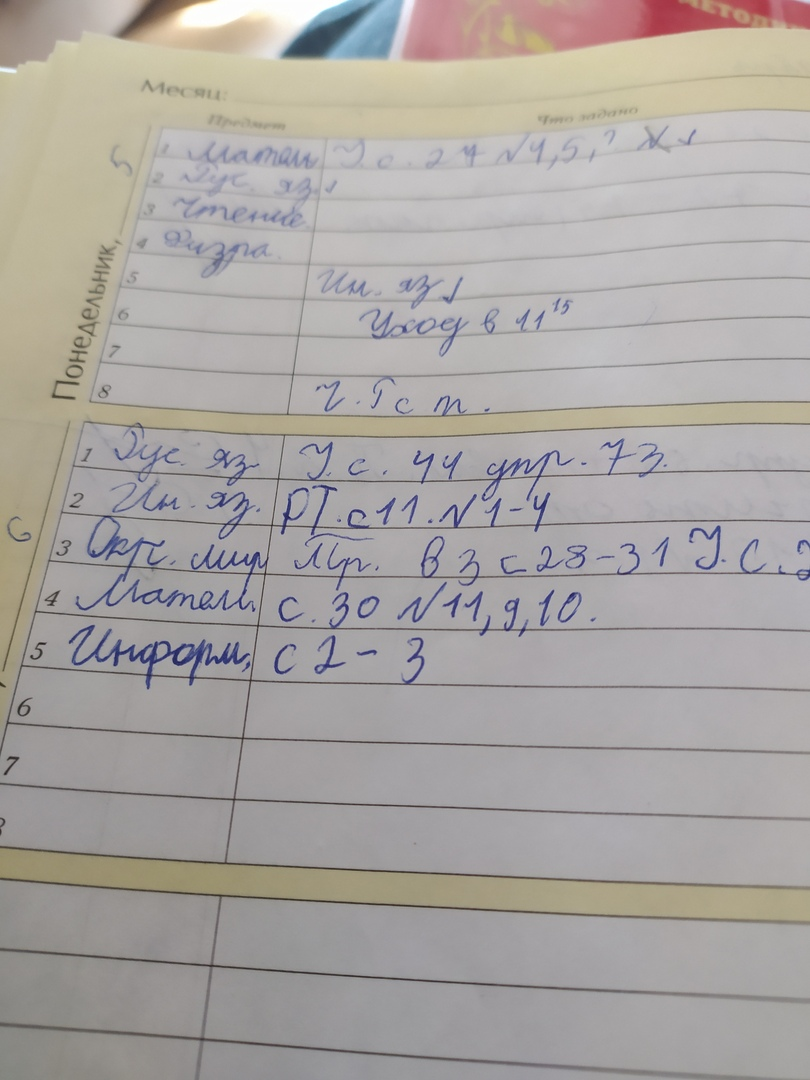 МЕТОДИ
Месяц:
Предмет Что задано
5
Понедельник,
1 Матем. У. с. 27 №4,5,? №
2 Рус. яз.
3 Чтение
4 Физра.
5 Ин. яз
6 Уход в 11 15
7
8 Г. Г с т.
6
1 Рус. яз У. с. 44 упр. 73.
2 Ин. яз. РТ. с 11. №1-4
3 Окр. мир Пр. в з с 28-31 У. С. 2
4 Матем. с. 30 №11, 9, 10.
5 Информ. с 2-3
6
7
8